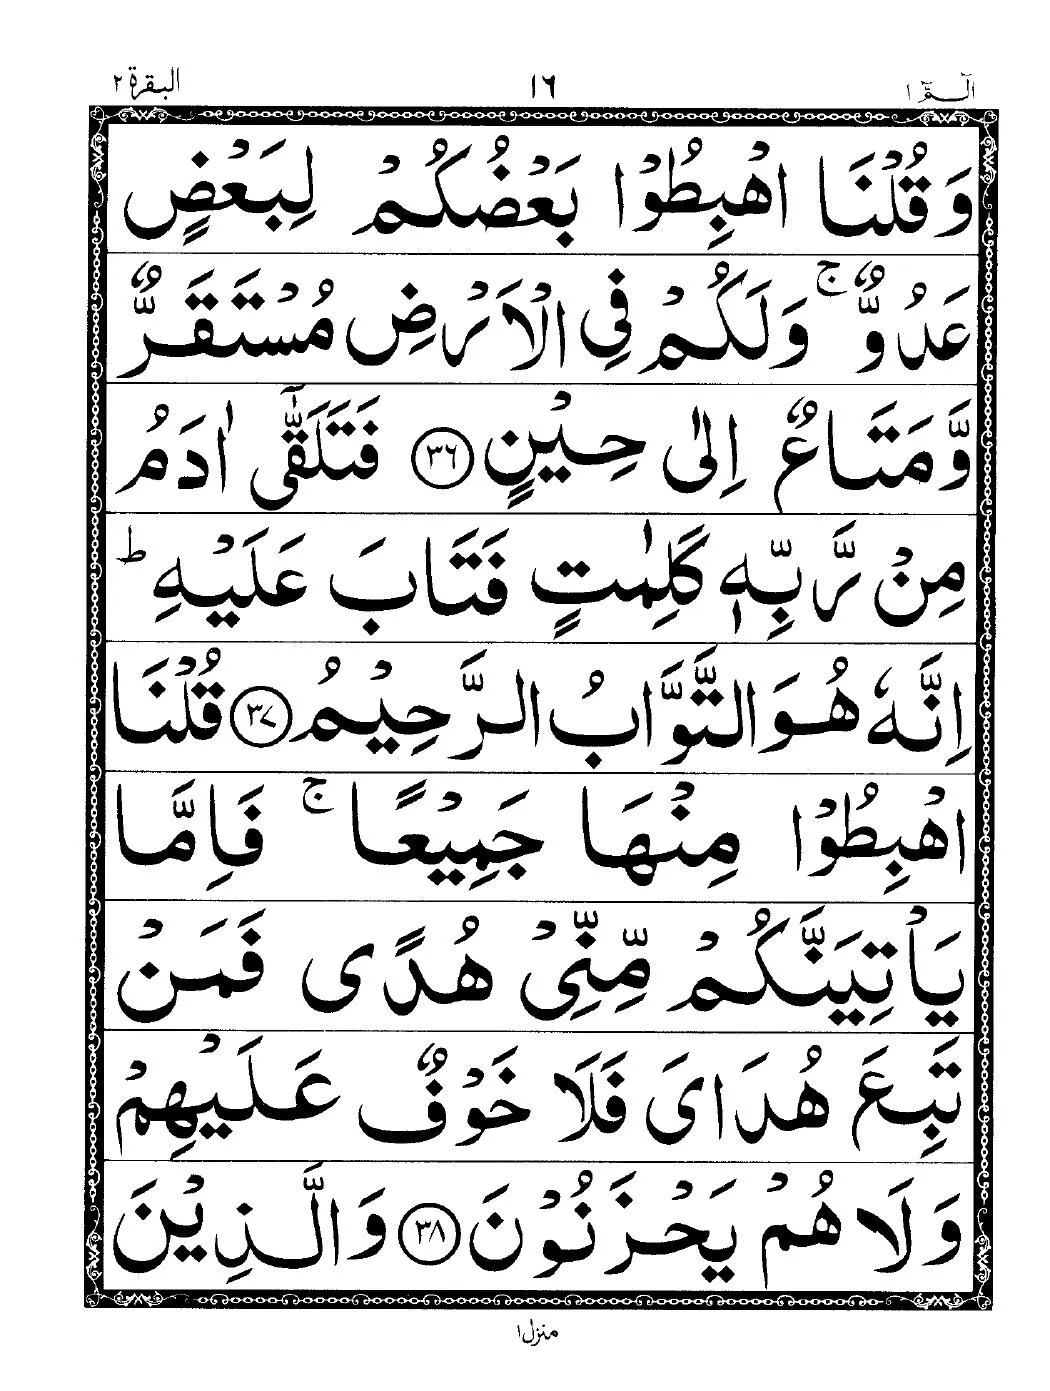 الٓمّٓ ۱ ۱۶ البقرة ۲
وَقُلْنَا اهْبِطُوْا بَعْضُكُمْ لِبَعْضٍ
عَدُوٌّ ۚ وَلَكُمْ فِی الْاَرْضِ مُسْتَقَرٌّ
وَّمَتَاعٌ اِلٰی حِیْنٍ ﴿۳۶﴾ فَتَلَقّٰۤی اٰدَمُ
مِنْ رَّبِّهٖ كَلِمٰتٍ فَتَابَ عَلَیْهِ ؕ
اِنَّهٗ هُوَ التَّوَّابُ الرَّحِیْمُ ﴿۳۷﴾ قُلْنَا
اهْبِطُوْا مِنْهَا جَمِیْعًا ۚ فَاِمَّا
یَاْتِیَنَّكُمْ مِّنِّیْ هُدًی فَمَنْ
تَبِعَ هُدَایَ فَلَا خَوْفٌ عَلَیْهِمْ
وَلَا هُمْ یَحْزَنُوْنَ ﴿۳۸﴾ وَالَّذِیْنَ
منزل ۱